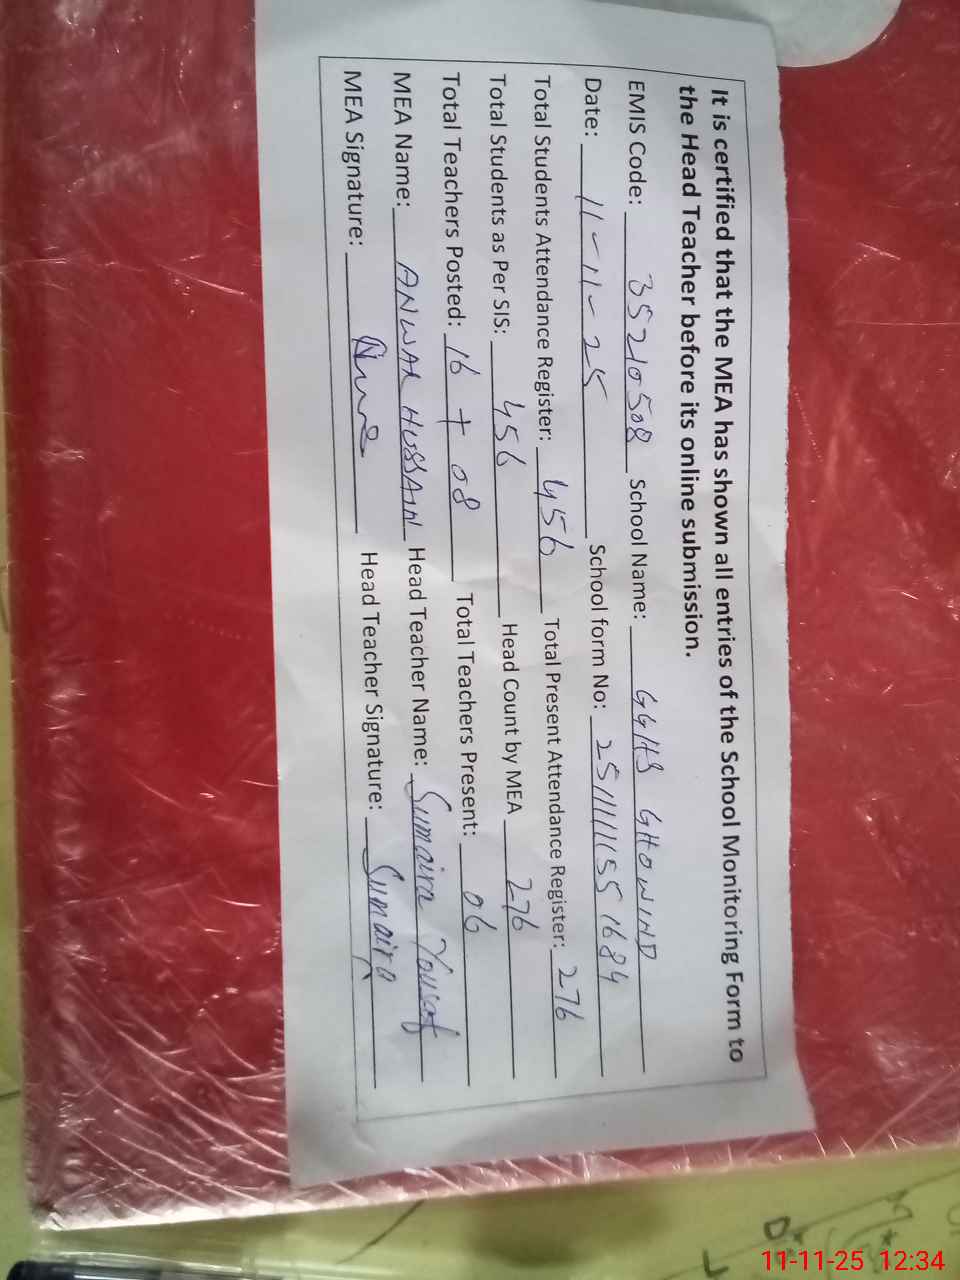 It is certified that the MEA has shown all entries of the School Monitoring Form to
the Head Teacher before its online submission.
EMIS Code: 35210508 School Name: GGHS GHOWIND
Date: 11-11-25 School form No: 2511111551684
Total Students Attendance Register: 456 Total Present Attendance Register: 276
Total Students as Per SIS: 456 Head Count by MEA 276
Total Teachers Posted: 16 + 08 Total Teachers Present: 06
MEA Name: ANWAR HUSSAIN Head Teacher Name: Sumaira Yousaf
MEA Signature: Head Teacher Signature: Sumaira
11-11-25 12:34